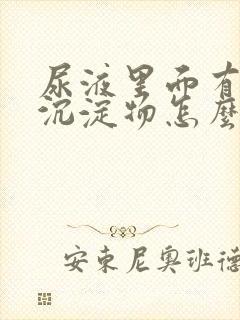 尿液里面有
沉淀物怎麼
安東尼奧班德